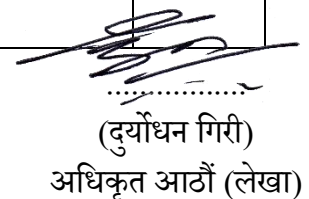 (दुर्योधन गिरी)
अधिकृत आठौं (लेखा)